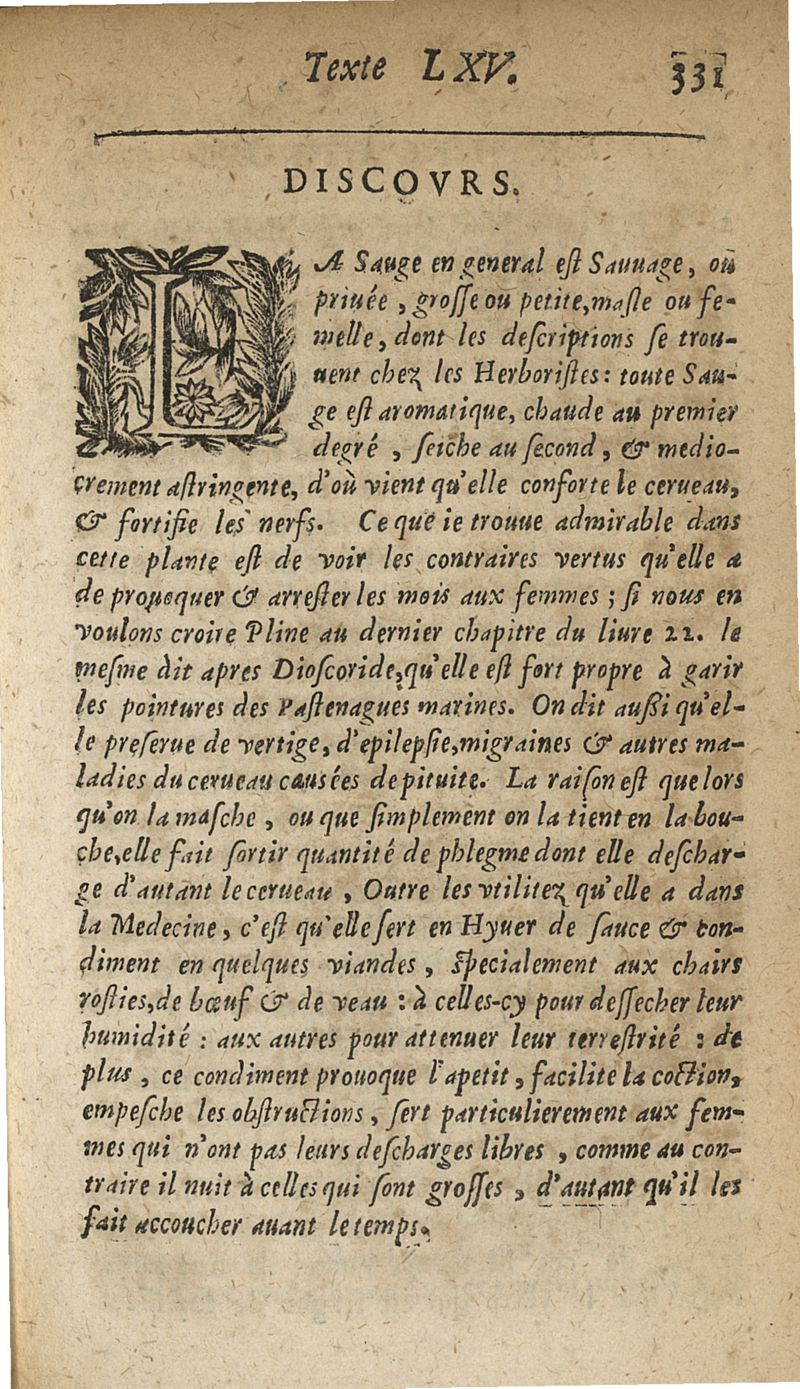 Texte LXV. 331
DISCOVRS.
LA Sauge en general est Sauuage, ou
priuée, grosse ou petite, masle ou fe-
melle, dont les descriptions se trou-
uent chez les Herboristes: toute Sau-
ge est aromatique, chaude au premier
degré, seiche au second, & medio-
crement astringente, d'où vient qu'elle conforte le cerueau,
& fortifie les nerfs. Ce que ie trouue admirable dans
cette plante est de voir les contraires vertus qu'elle a
de prouoquer & arrester les mois aux femmes; si nous en
voulons croire Pline au dernier chapitre du liure 22. le
mesme dit apres Dioscoride, qu'elle est fort propre à garir
les pointures des Pastenagues marines. On dit aussi qu'el-
le preserue de vertige, d'epilepsie, migraines & autres ma-
ladies du cerueau causées de pituite. La raison est que lors
qu'on la masche, ou que simplement on la tient en la bou-
che, elle fait sortir quantité de phlegme dont elle deschar-
ge d'autant le cerueau, Outre les vtilitez qu'elle a dans
la Medecine, c'est qu'elle sert en Hyuer de sauce & con-
diment en quelques viandes, specialement aux chairs
rosties, de bœuf & de veau: à celles-cy pour dessecher leur
humidité: aux autres pour attenuer leur terrestrité: de
plus, ce condiment prouoque l'apetit, facilite la coction,
empesche les obstructions, sert particulierement aux fem-
mes qui n'ont pas leurs descharges libres, comme au con-
traire il nuit à celles qui sont grosses, d'autant qu'il les
fait accoucher auant le temps.